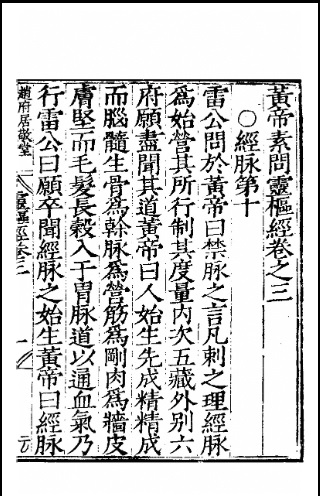 黃帝素問靈樞經卷之三
○經脉第十
雷公問於黃帝曰禁脉之言凡刺之理經脉
為始營其所行制其度量內次五藏外別六
府願盡聞其道黃帝曰人始生先成精精成
而腦髓生骨為幹脉為營筋為剛肉為牆皮
膚堅而毛髮長穀入于胃脉道以通血氣乃
行雷公曰願卒聞經脉之始生黃帝曰經脉
趙府居敬堂 靈樞經卷三 一